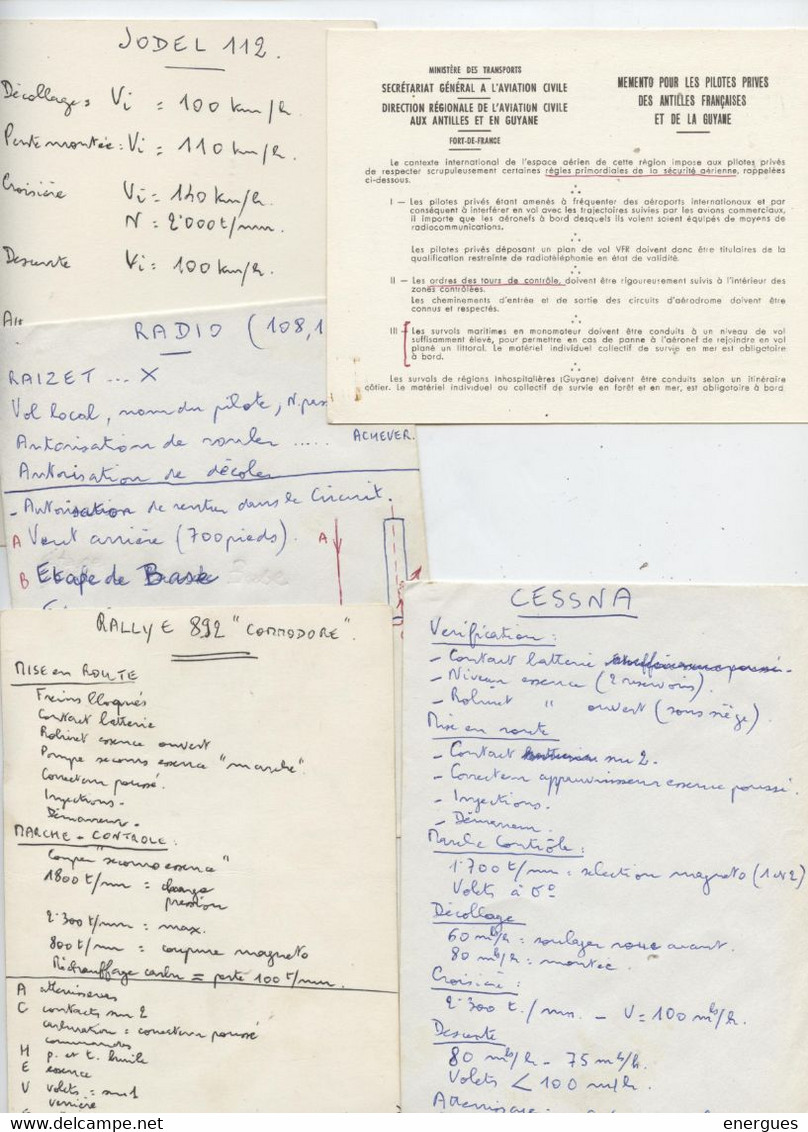 JODEL 112
Décollage : Vi = 100 km/h.
Pente montée : Vi = 110 km/h.
Croisière Vi = 140 km/h.
N = 2.000 t/mn.
Descente Vi = 100 km/h.
Att
MINISTÈRE DES TRANSPORTS
SECRÉTARIAT GÉNÉRAL A L'AVIATION CIVILE
DIRECTION RÉGIONALE DE L'AVIATION CIVILE
AUX ANTILLES ET EN GUYANE
FORT-DE-FRANCE
MEMENTO POUR LES PILOTES PRIVES
DES ANTILLES FRANÇAISES
ET DE LA GUYANE
Le contexte international de l'espace aérien de cette région impose aux pilotes privés
de respecter scrupuleusement certaines règles primordiales de la sécurité aérienne, rappelées
ci-dessous.
I — Les pilotes privés étant amenés à fréquenter des aéroports internationaux et par
conséquent à interférer en vol avec les trajectoires suivies par les avions commerciaux,
il importe que les aéronefs à bord desquels ils volent soient équipés de moyens de
radiocommunications.
Les pilotes privés déposant un plan de vol VFR doivent donc être titulaires de la
qualification restreinte de radiotéléphonie en état de validité.
II — Les ordres des tours de contrôle, doivent être rigoureusement suivis à l'intérieur des
zones contrôlées.
Les cheminements d'entrée et de sortie des circuits d'aérodrome doivent être
connus et respectés.
III — Les survols maritimes en monomoteur doivent être conduits à un niveau de vol
suffisamment élevé, pour permettre en cas de panne à l'aéronef de rejoindre en vol
plané un littoral. Le matériel individuel collectif de survie en mer est obligatoire
à bord.
Les survols de régions inhospitalières (Guyane) doivent être conduits selon un itinéraire
côtier. Le matériel individuel ou collectif de survie en forêt et en mer, est obligatoire à bord
RADIO (108,1
RAIZET ... X
Vol local, nom du pilote, N. pers
Autorisation de rouler ..... ACHEVER.
Autorisation de décoler
- Autorisation de rentrer dans le Circuit.
A Vent arrière (700 pieds). A
B Etape de Base
RALLYE 892 "COMMODORE".
MISE en ROUTE
Freins bloqués
Contact batterie
Robinet essence ouvert
Pompe secours essence "marche".
Correcteur poussé.
Injections.
Démarreur.
MARCHE - CONTROLE :
Couper "secours essence"
1800 t/mn = charge
pression
2.300 t/mn = max.
800 t/mn = coupure magneto
Réchauffage carbu = perte 100 t/mn.
A atterrisseurs
C contacts sur 2
carburation = correcteur poussé
commandes
H p. et t. huile
E essence
V volets = sur 1
verrière
CESSNA
Verification :
- Contact batterie
- Niveau essence (2 reservoirs).
- Robinet " ouvert (sous siège).
Mise en route
- Contact sur 2.
- Correcteur appauvrisseur essence poussé.
- Injections.
- Démarreur.
Marche Contrôle :
1.700 t/mn = selection magneto (1 et 2)
Volets à 0°
Décollage
60 mls/h = soulager roue avant.
80 mls/h = montée.
Croisière :
2.300 t./mn. - V = 100 mls/h.
Descente
80 mls/h - 75 mls/h.
Volets < 100 m/h.
Atterrissage :
energues